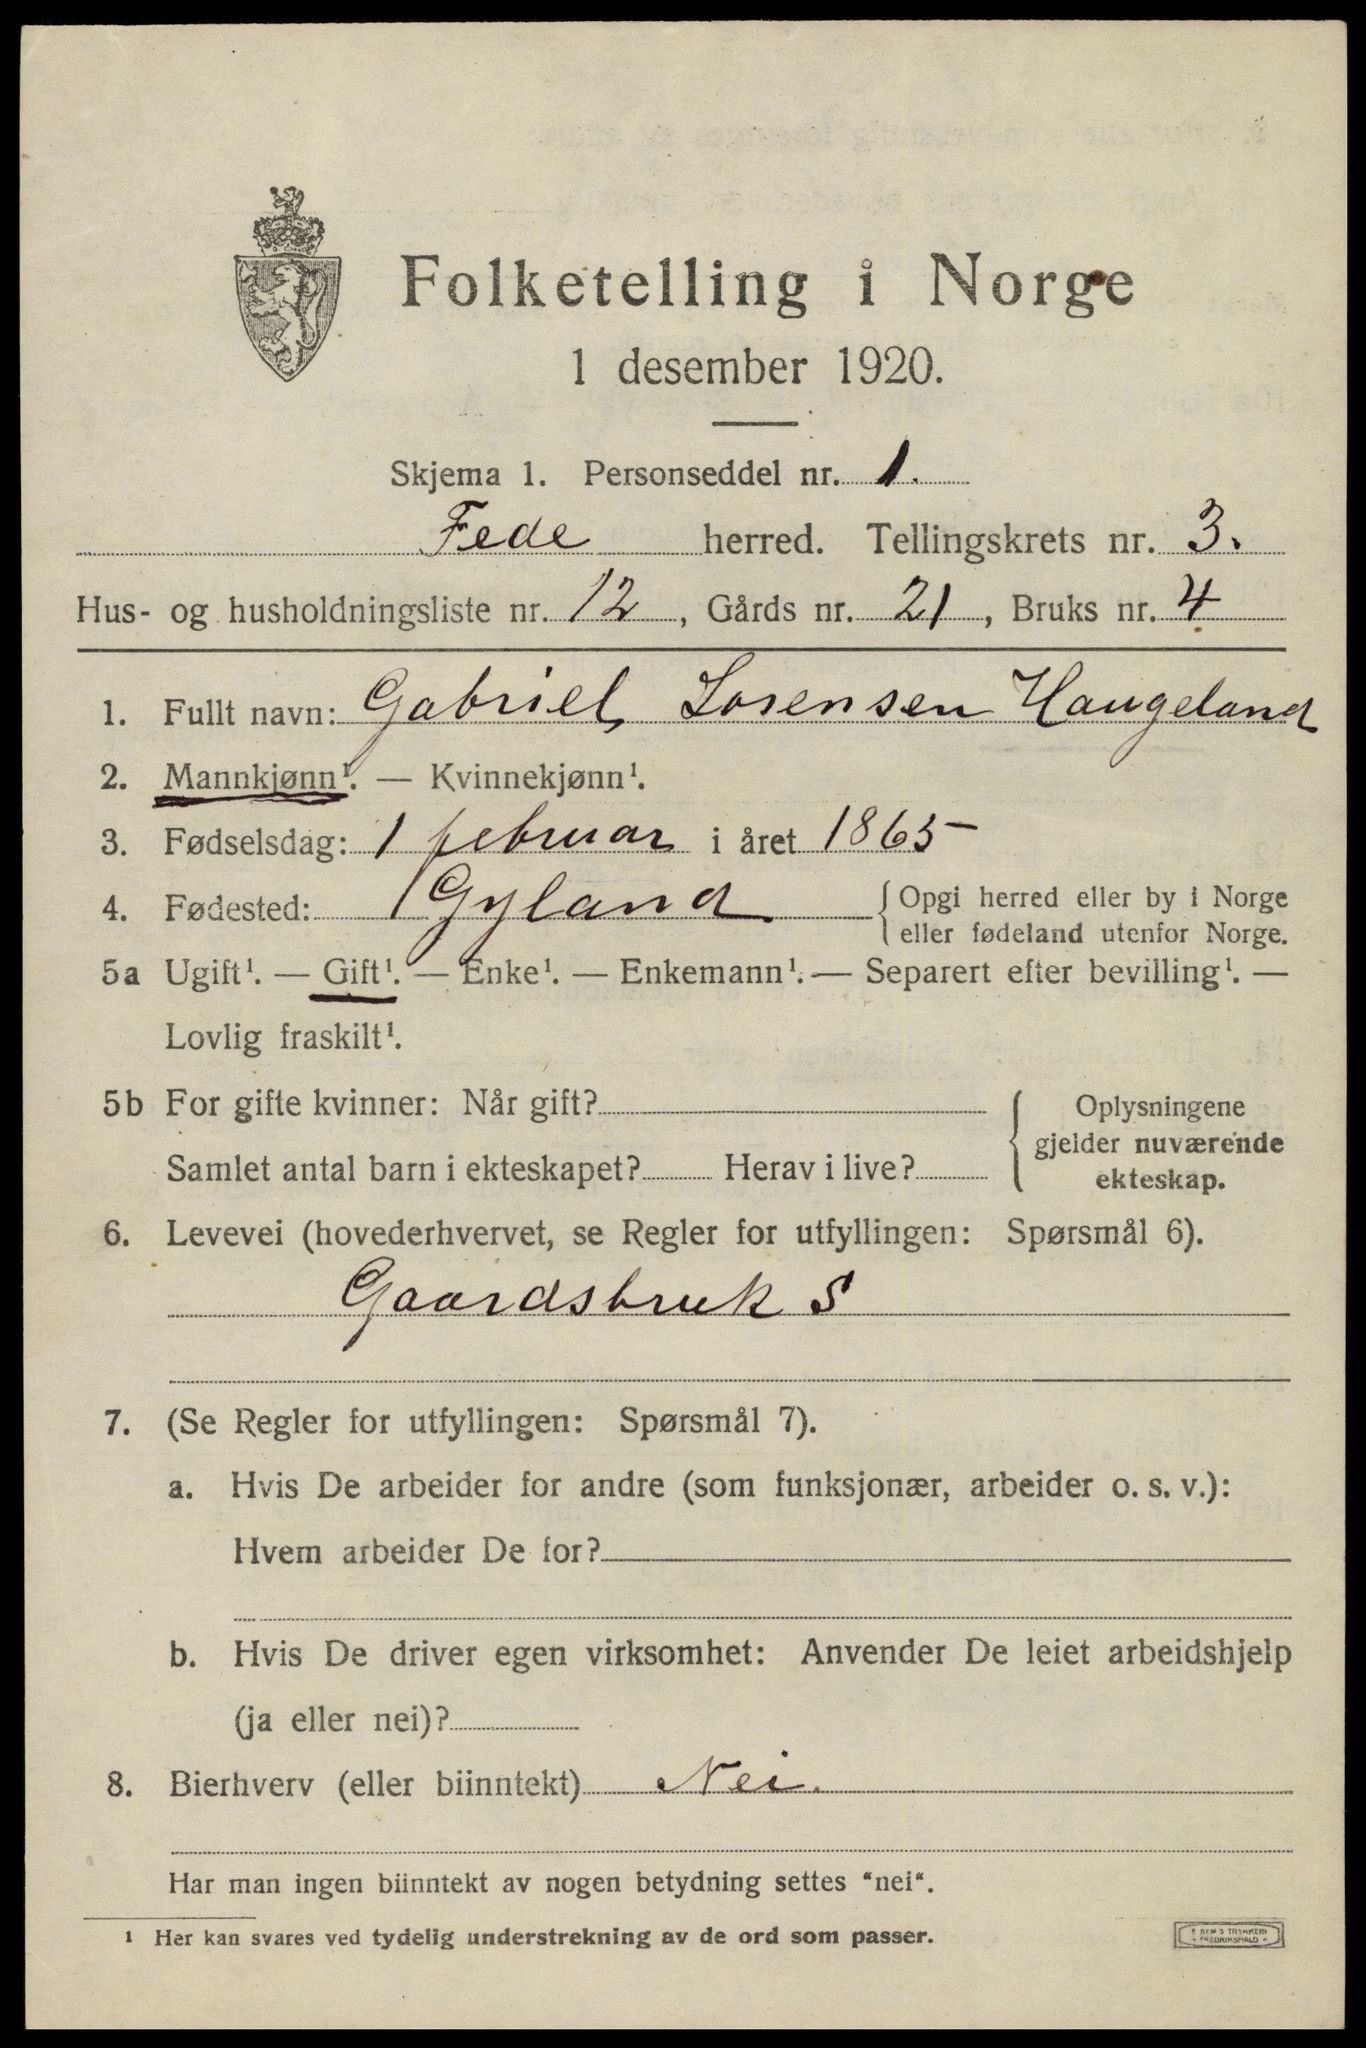 Folketelling i Norge
1 desember 1920.
Skjema 1. Personseddel nr. 1.
Fede herred. Tellingskrets nr. 3.
Hus- og husholdningsliste nr. 12, Gårds nr. 21, Bruks nr. 4
1. Fullt navn: Gabriel Lorensen Haugeland
2. Mannkjønn¹. — Kvinnekjønn¹.
3. Fødselsdag: 1 februar i året 1865
4. Fødested: Gyland { Opgi herred eller by i Norge
eller fødeland utenfor Norge.
5a Ugift¹. — Gift¹. — Enke¹. — Enkemann¹. — Separert efter bevilling¹. —
Lovlig fraskilt¹.
5b For gifte kvinner: Når gift?
Samlet antal barn i ekteskapet? Herav i live?
{ Oplysningene
gjelder nuværende
ekteskap.
6. Levevei (hovederhvervet, se Regler for utfyllingen: Spørsmål 6).
Gaardsbruk S
7. (Se Regler for utfyllingen: Spørsmål 7).
a. Hvis De arbeider for andre (som funksjonær, arbeider o. s. v.):
Hvem arbeider De for?
b. Hvis De driver egen virksomhet: Anvender De leiet arbeidshjelp
(ja eller nei)?
8. Bierhverv (eller biinntekt) Nei.
Har man ingen biinntekt av nogen betydning settes "nei".
¹ Her kan svares ved tydelig understrekning av de ord som passer.
TRYKKERI
FREDRIKSHALD